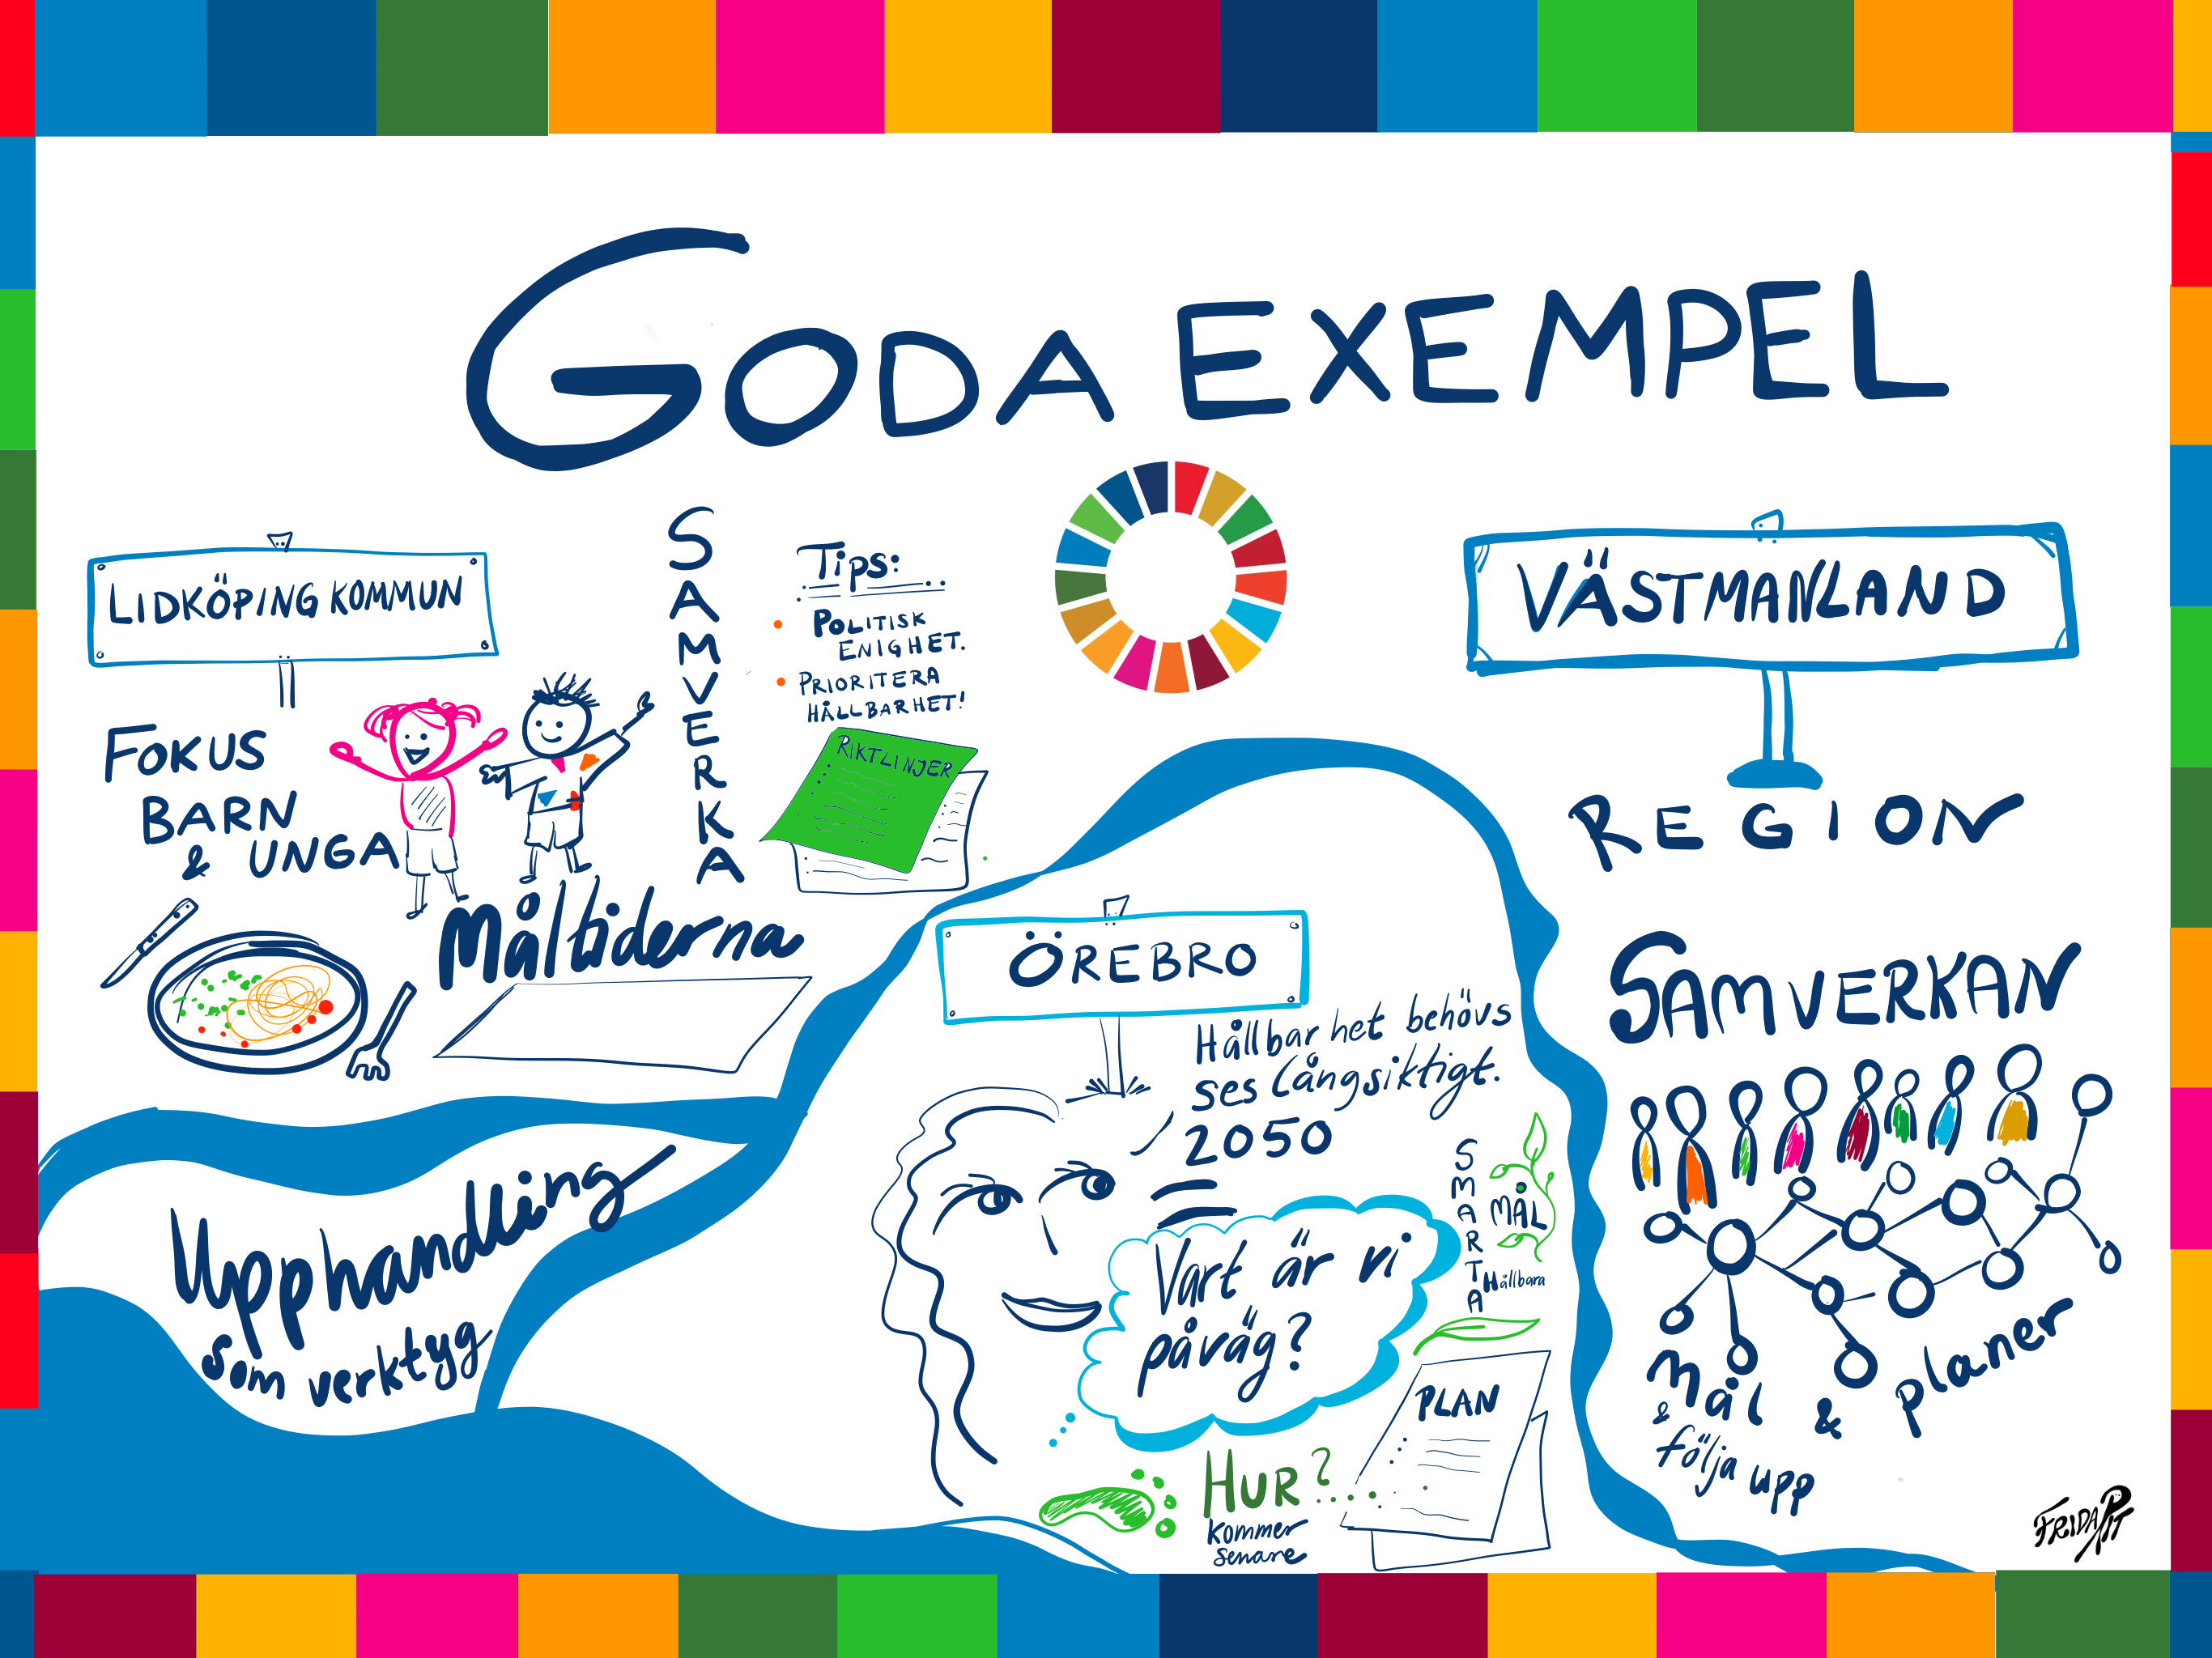 GODA EXEMPEL
LIDKÖPING KOMMUN
FOKUS
BARN
& UNGA
SAMVERKA
Tips:
• POLITISK
ENIGHET.
• PRIORITERA
HÅLLBARHET!
RIKTLINJER
Måltiderna
Upphandling
som verktyg
ÖREBRO
Hållbarhet behövs
ses långsiktigt.
2050
Vart är vi
påväg?
SMARTA
MÅL
Hållbara
PLAN
HUR?....
kommer
senare
VÄSTMANLAND
REGION
SAMVERKAN
Mål & planer
& följa upp
FRIDA PIT